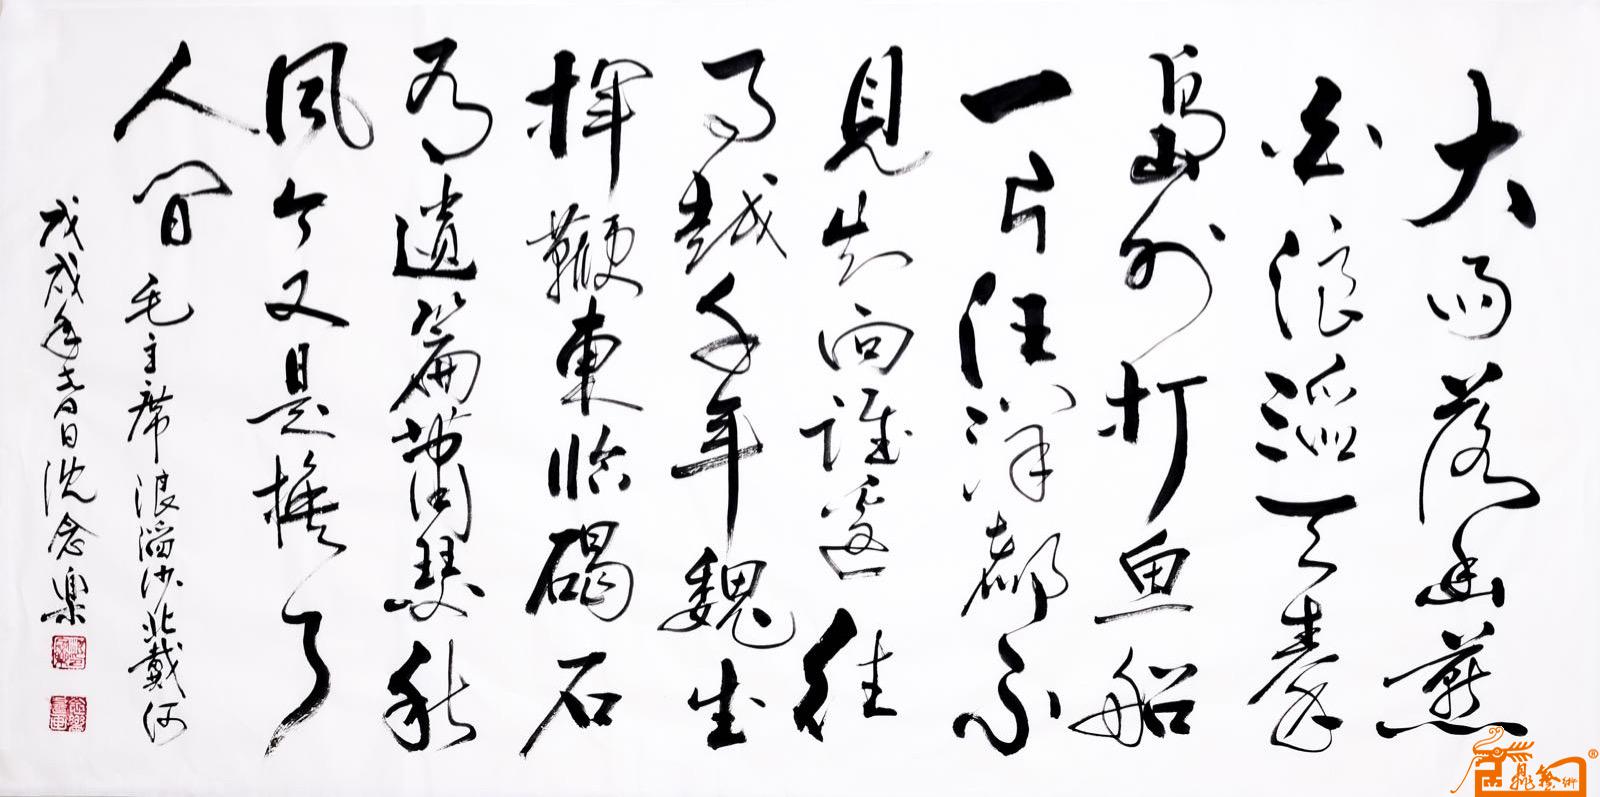 大雨落幽燕
白浪滔天秦
島外打魚船
一片汪洋都不
見知向誰邊往
事越千年魏武
揮鞭東臨碣石
有遺篇蕭瑟秋
風今又是換了
人間
毛主席浪滔沙北戴河
戊戌年月日沈念樂